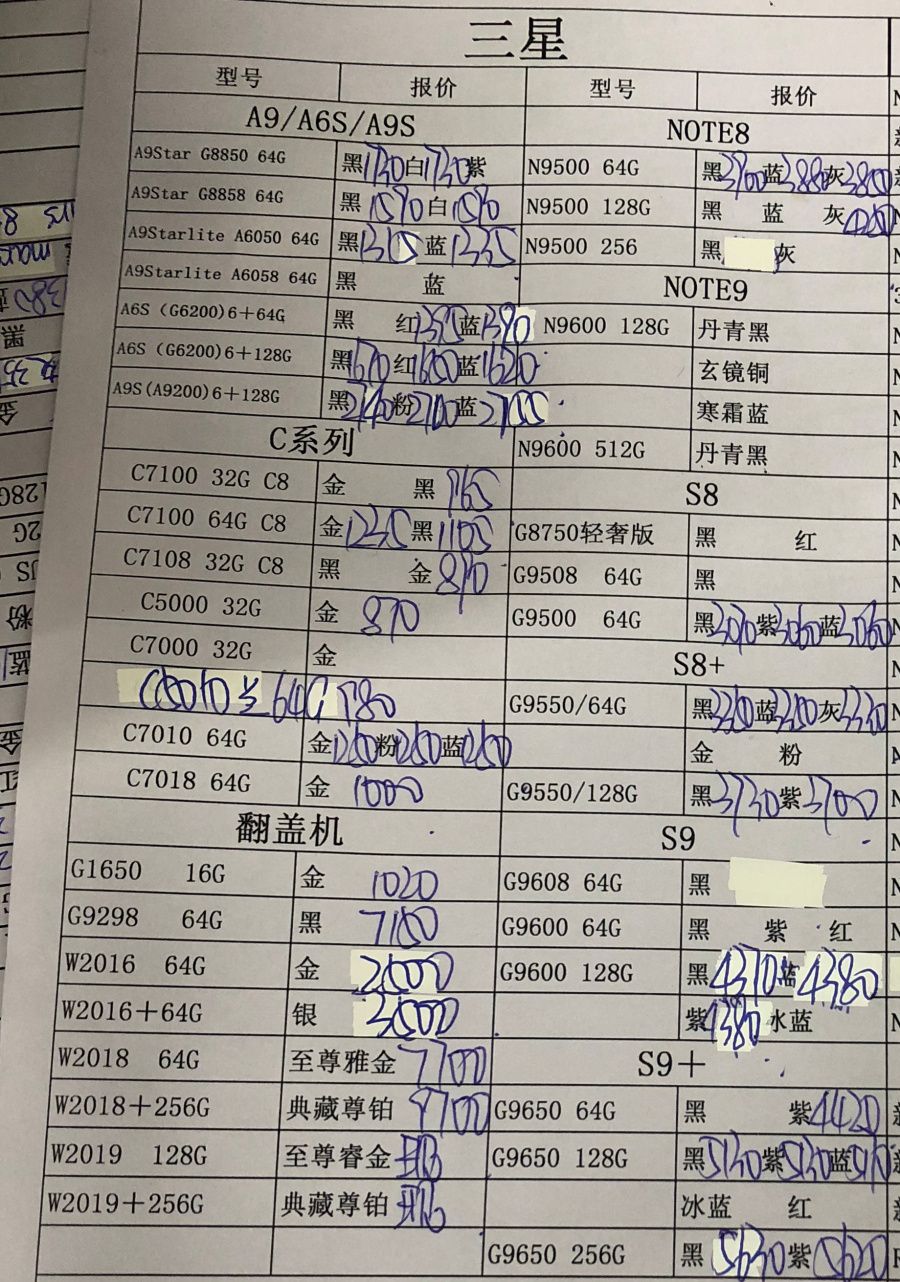 三星
型号 报价 型号 报价
A9/A6S/A9S NOTE8
A9Star G8850 64G 黑1730白1730紫 N9500 64G 黑3900蓝3880灰3800
A9Star G8858 64G 黑1590白1590 N9500 128G 黑 蓝 灰
A9Starlite A6050 64G 黑1315蓝1335 N9500 256 黑 灰
A9Starlite A6058 64G 黑 蓝 NOTE9
A6S (G6200)6+64G 黑 红1390蓝1390 N9600 128G 丹青黑
A6S (G6200)6+128G 黑1670红1600蓝1620 玄镜铜
A9S(A9200)6+128G 黑2140粉2100蓝2155 寒霜蓝
C系列 N9600 512G 丹青黑
C7100 32G C8 金 黑965 S8
C7100 64G C8 金1235黑1105 G8750轻奢版 黑 红
C7108 32G C8 黑 金890 G9508 64G 黑
C5000 32G 金 870 G9500 64G 黑3090紫3060蓝3060
C7000 32G 金 S8+
C5010 64G 780 G9550/64G 黑3350蓝3280灰3330
C7010 64G 金1250粉1250蓝1250 金 粉
C7018 64G 金 1000 G9550/128G 黑3730紫3700
翻盖机 S9
G1650 16G 金 1020 G9608 64G 黑
G9298 64G 黑 7150 G9600 64G 黑 紫 红
W2016 64G 金 2500 G9600 128G 黑4370蓝4380
W2016+64G 银 3500 紫4380冰蓝
W2018 64G 至尊雅金7700 S9+
W2018+256G 典藏尊铂 9700 G9650 64G 黑 紫4420
W2019 128G 至尊睿金 G9650 128G 黑5130紫5130蓝5110
W2019+256G 典藏尊铂 冰蓝 红
G9650 256G 黑5630紫5620